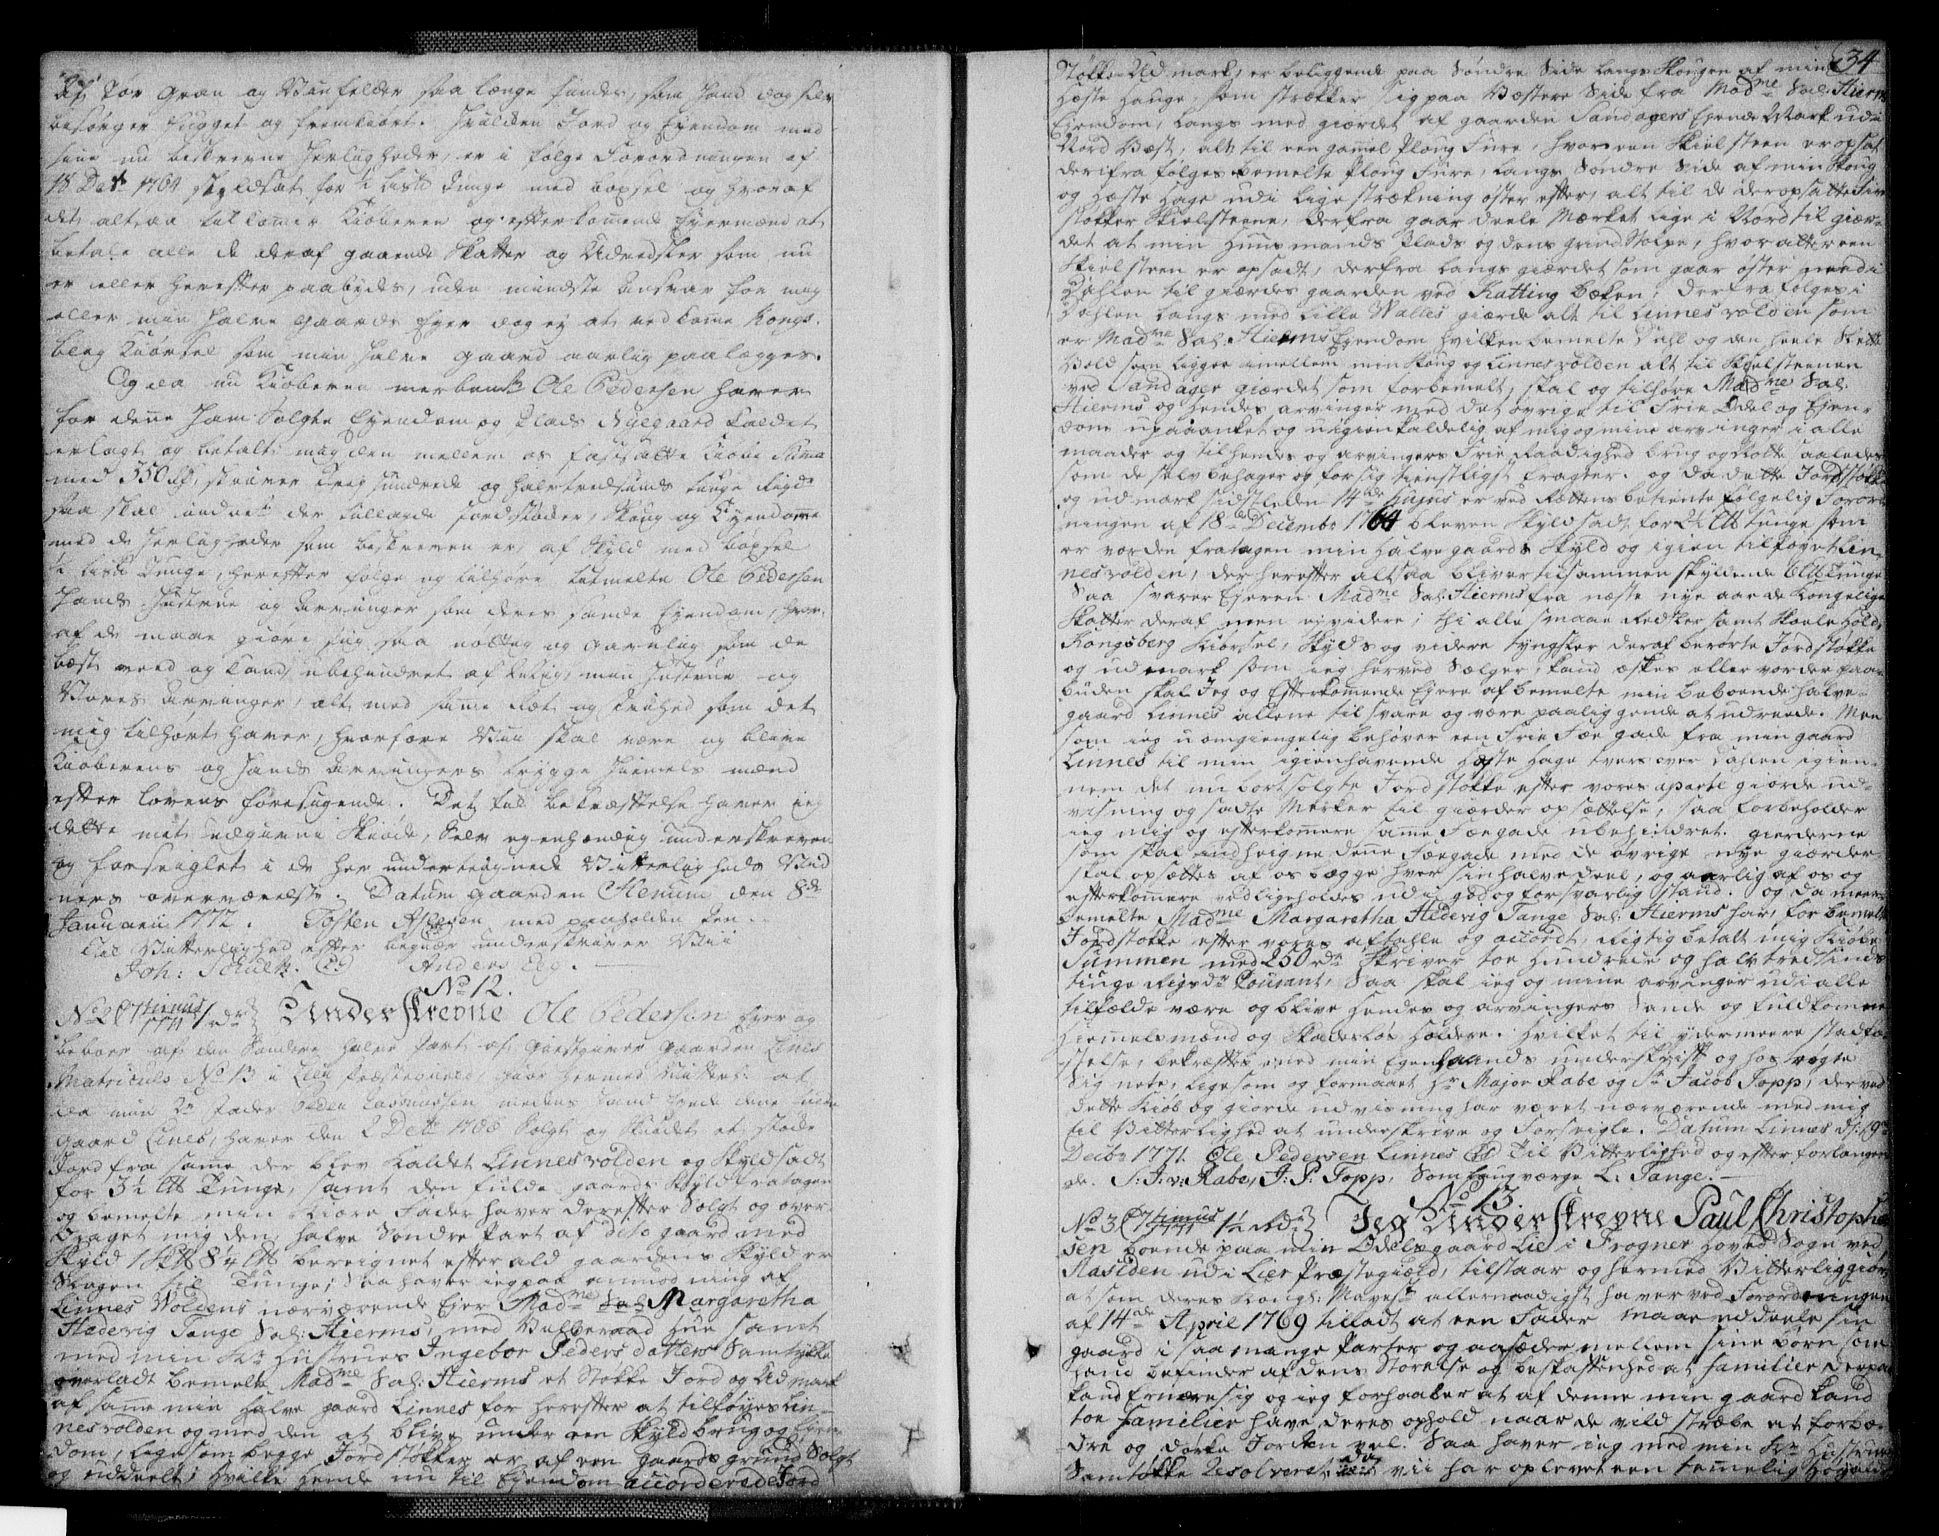 Af Tør Gran og Vinfelder saa længe findes, som hand dog selv
besørger hugget og fremkiørt. Hvilken Jord og Eyendom med
sine nu beskrevne herligheder, er i følge Forordningen af
18 Decbr 1764 skyldsat for ½ Lis℔ Tunge med boxsel og hvoraf
det altsaa tilkomer Kiøberen og efterkomende Eyermænd at
betale alle de deraf gaaende Skatter og Udredsler som nu
er eller herefter paabydes, uden mindste Ansvar for mig
eller min halve Gaards Eyer dog ey at vedkome Kongs-
berg Kiørsel som min halve gaard aarlig paalegges.
Og da nu Kiøberen merbemte Ole Pedersen haver
for dene ham Solgte Eyendom og Plads Nyegaard kaldet
erlagt og betalt mig den mellem os fastsatte Kiøbe Suma
med 350 rdr, skriver Trey hundrede og halvtredsinds tiuge Rigsdr
saa skal andregte der tilliggende Jordstøcker, Skoug og Eyendomme
med de herligheder som beskreven er, af Skyld med boxsel
½ Lis℔ Tunge, herefter følge og tilhøre bemelte Ole Pedersen
hands Hustrue og Arvinger som deres sande Eyendom, hvor-
af de maae giøre sig saa nøttig og gavnlig som de
best veed og kand, ubehindret af mig, min Hustrue og
Vores Arvinger, alt med same Ret og Friehed som det
mig tilhørt haver, hvorfore Vii skal være og blive
Kiøberens og hands Arvingers trygge hiemels mænd
efter Lovens foresigende. Det til bekræftelse haver ieg
dette mit udgivne Skiøde, Selv egenhændig underskreven
og forseiglet i de her undertegnede Vitterligheds Vid-
ners overværelse. Datum gaarden Stenum den 8de
Januarii 1772. Tosten Alfsen med paaholden Pen.
Til Vitterlighed efter begiær underskriver Vii
Joh: Schultz. (LS) Anders Eeg.
No 12.
No 2 Underskrevne Ole Pedersen Eyer og
beboer af den Søndre halve part af Giestgiver gaarden Linnes
Matriculs No 13 i Lier Præstegield, giør hermed Vitterlig at
da min Sl. Fader Peder Rasmussen medens hand eyede dene min
gaard Linnes, haver den 2 Decbr Solgt og Skiødet et støcke
Jord fra same der blev kaldet Linnesvolden og Skyldsadt
for 3½ ℔ Tunge, samt den fulde gaards Skyld fratagen
og bemelte min kiære Fader haver derefter Solgt og over-
draget mig den halve Søndre Part af dito gaard med
Skyld 1 Sk℔ 8¼ ℔ bereignet efter ald gaardens Skyld er
dragen til Tunge; Saa haver ieg paa anmodning af
Linnes Voldens nærværende Eyer Madme Sal Margaretha
Hedevig Tange Sal: Hierms, med Velberaad hue samt
med min Kr Hustrues Ingebor Peders datters Samtykke
overladt bemelte Madme Sal: Hierms et Støkke Jord og Udmark
af same min halve gaard Linnes for herefter at tilføyes Lin-
nesvolden og med den at blive under een Skyld brug og Eyen-
dom, lige som begge Jordstøkker er af een gaards grund Solgt
og uddeelt; hvilke hende nu til Eyendom accorderede Jord
34
Støkke Udmark, er beliggende paa Søndre Side langs Skougen af min
Hæste Hauge, som strekker sig paa Væstere Side fra Madme Sal: Hierms
Eyendom, langs med giærdet af gaarden Sandagers Eyende Mark udi
Nord Væst, alt til een gamel Ploug Fure, hvor een Skielsteen er opsat
derifra følges bemelte Ploug Fure, langs Søndre Side af min Skoug
og Hæste Hage udi lige strækning øster efter, alt til de der opsatte Fire
støkker Skielsteene, derfra gaar deele Merket lige i Nord til giær-
det at min Huusmands Plads og dens grind Stolpe, hvor atter een
Skielsteen er opsadt, derfra langs giærdet som gaar øster ned i
Dahlen til giærdes gaarden ved Katting bæken; derfra følges i
Dahlen langs med Lille Valles giærde alt til Linnesvolden som
er Madme Sal: Hierms Eyendom hvilken bemelte Dahl og den heele Slette
Vold som ligger imellem min Skoug og Linnesvolden alt til Skielsteenen
ved Sandager giærdet som forbemelt, skal og tilhøre Madme Sal:
Hierms og hendes arvinger med det øvrige til Frie Odel og Eyen-
dom upaaanket og uigienkaldelig af mig og mine arvinger i alle
maader og til hendes og arvingers Frie Raadighed brug og Nøtte saaledes
som de selv behager og for sig tienstligst eragter. og da dette Jordstøkke
og udmark sidstleden 14de hujus er ved Rettens betiente følgelig Forord-
ningen af 18de Decembr 1764 bleven Skyldsadt for 2½ ℔ tunge som
er vorden fratagen min halve gaards Skyld og igien tilføyet Lin-
nesvolden, der herefter altsaa bliver tilsammen skyldende 6 ℔ tunge
Saa svarer Eyeren Madme Sal: Hierms fra næste nye aar de kongelige
Skatter deraf men ey videre; thi alle smaae Redsler samt Skoelehold,
Kongsberg Kiørsel, Skyds og videre tyngsler deraf berørte Jordstøkke
og udmark som ieg herved Sælger, kand æskes eller vorder paa-
buden skal Jeg og Efterkomende Eyere af bemelte min beboende halve-
gaard Linnes allene tilsvare og være paaliggende at udreede. Men
som ieg uomgiengelig behøver een Frie Fæe gade fra min gaard
Linnes til min igienhavende Hæste Hage tvers over Dahlen igien-
nem det nu bortsolgte Jordstøkke efter vores aparte giorde ud-
visning og sadte Merker til giærder opsættelse, saa forbeholder
ieg mig og efterkomere same Fæegade ubehindret. gierderne
som skal indhegne dene Fæegade med de øvrige nye giærder
skal opsættes af os begge hver sin halve deel, og aarlig af os og
efterkomere vedligeholdes udi god og forsvarlig stand. og da meer-
bemelte Madme Margaretha Hedevig Tange Sal: Hierms har, for bemelte
Jordstøkke efter vores aftahle og accordt, Rigtig betalt mig Kiøbe
Summen med 250 rdr skriver toe Hundrede og halvtredsinds
tiuge Rigsdr Courant, Saa skal ieg og mine arvinger udi alle
tilfælde være og blive hendes og arvingers Sande og fuldkomne
Hiemelsmænd og Skadesløs holdere. Hvilket til ydermeere stadfæ-
stelse, bekræftes med min Egenhaands underskrift og hostrøgte
Signete, ligesom og formaaet Hr Major Rabe og Sr Jacob Topp, der ved
dette Kiøb og giorde udvisning har været nærværende med mig
til Vitterlighed at underskrive og Forseigle. Datum Linnes d: 19de
Decbr 1771. Ole Pedersen Linnes (LS) Til Vitterlighed og efter forlangen-
de. S: J: v: Rabe, J: P. Topp, Som Laugværge L: Tange.
No 13.
No 3 Jeg Underskrevne Paul Christopher-
sen boende paa min Odelsgaard Lie i Frogner Hoved Sogn ved
Aasiden udi Lier Præstegield, tilstaar og hermed Vitterliggiør
at som deres Kongl: Mayest: allernaadigst haver ved Forordningen
af 14de April 1769 tilladt at een Fader maae uddeele sin
gaard i saa mange Parter og aasæder mellem sine børn som
hand befinder af dens Størelse og beskaffenhed at familier derpaa
kand Ernære sig og ieg forhaaber at af denne min gaard kand
toe familier have deres ophold naar de vild stræbe at forbæ-
dre og dørke Jorden vel. Saa haver ieg med min Kr Hustrues
Samtøkke Resolveret, da vii har oplevet een temmelig Høy alder